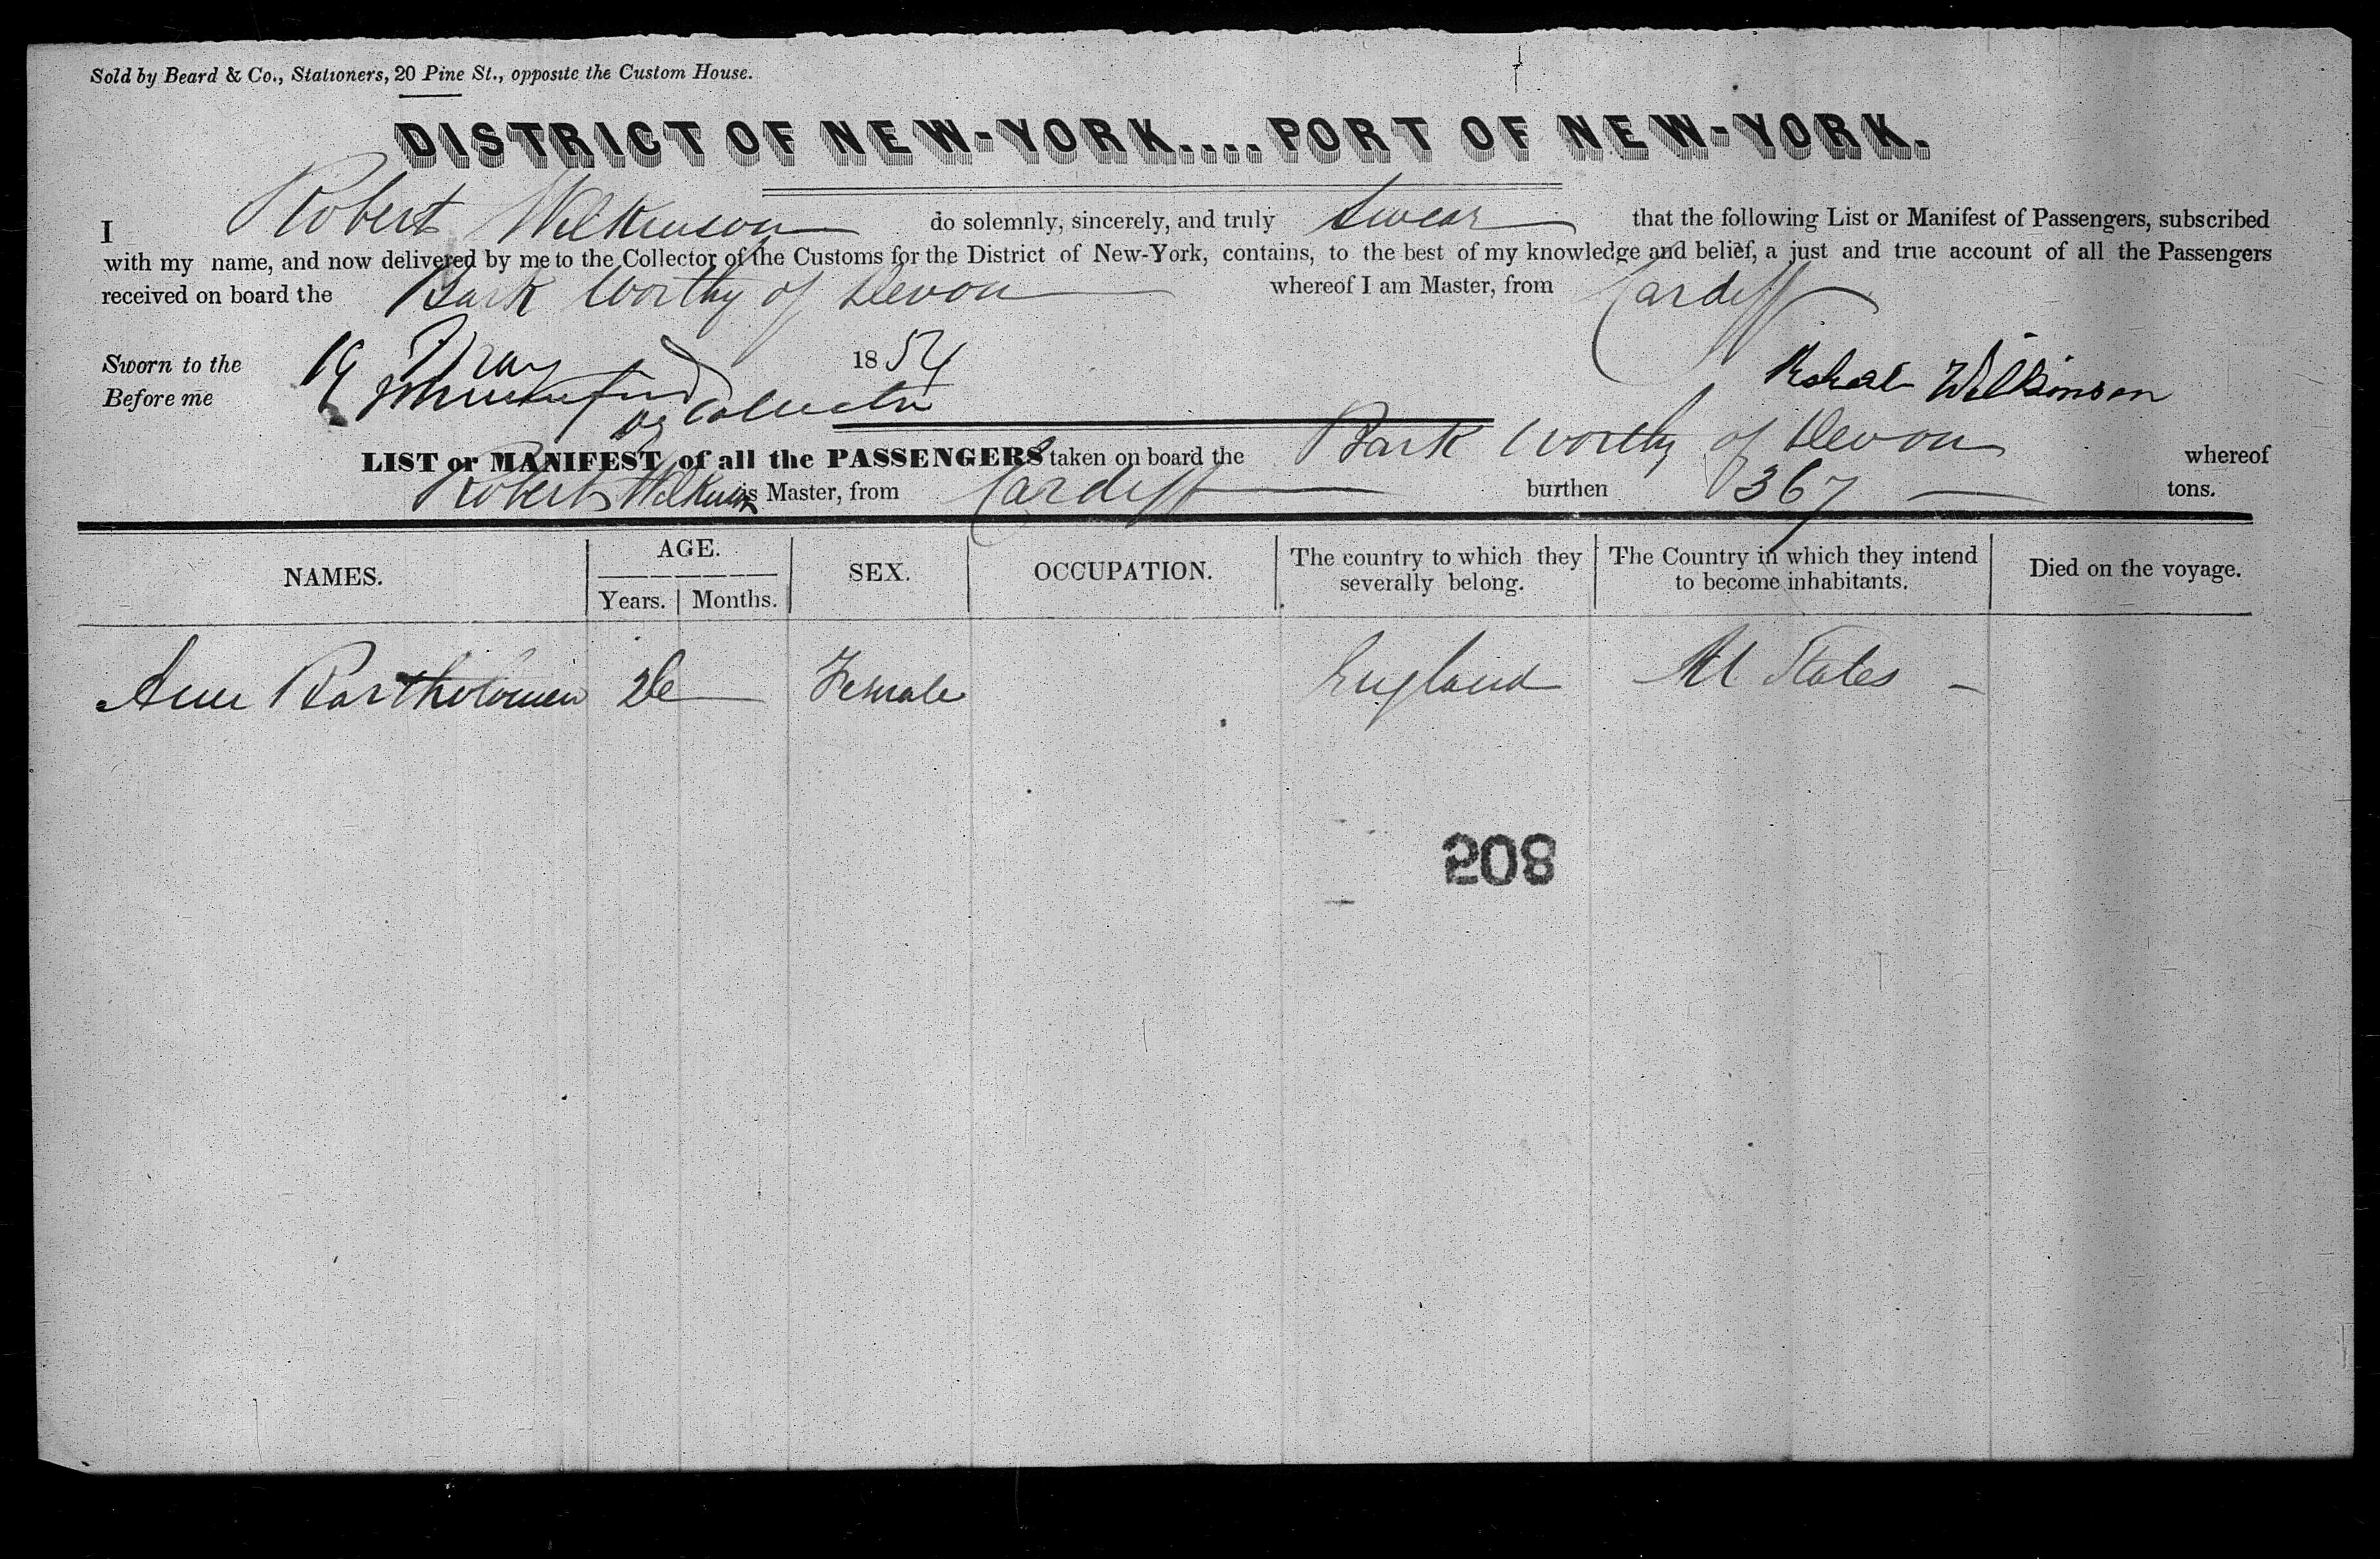 Sold by Beard & Co., Stationers, 20 Pine St., opposite the Custom House.
DISTRICT OF NEW-YORK....PORT OF NEW-YORK.
I Robert Wilkinson do solemnly, sincerely, and truly Swear that the following List or Manifest of Passengers, subscribed
with my name, and now delivered by me to the Collector of the Customs for the District of New-York, contains, to the best of my knowledge and belief, a just and true account of all the Passengers
received on board the Bark Worthy of Devon whereof I am Master, from Cardiff
Sworn to the 19 May 1854
Robert Wilkinson
Before me Collector
LIST or MANIFEST of all the PASSENGERS taken on board the Bark Worthy of Devon whereof
Robert Wilkinson is Master, from Cardiff burthen 367 tons.
NAMES. AGE. Years. Months. SEX. OCCUPATION. The country to which they severally belong. The Country in which they intend to become inhabitants. Died on the voyage.
Ann Bartholomew 26 Female England U States
208